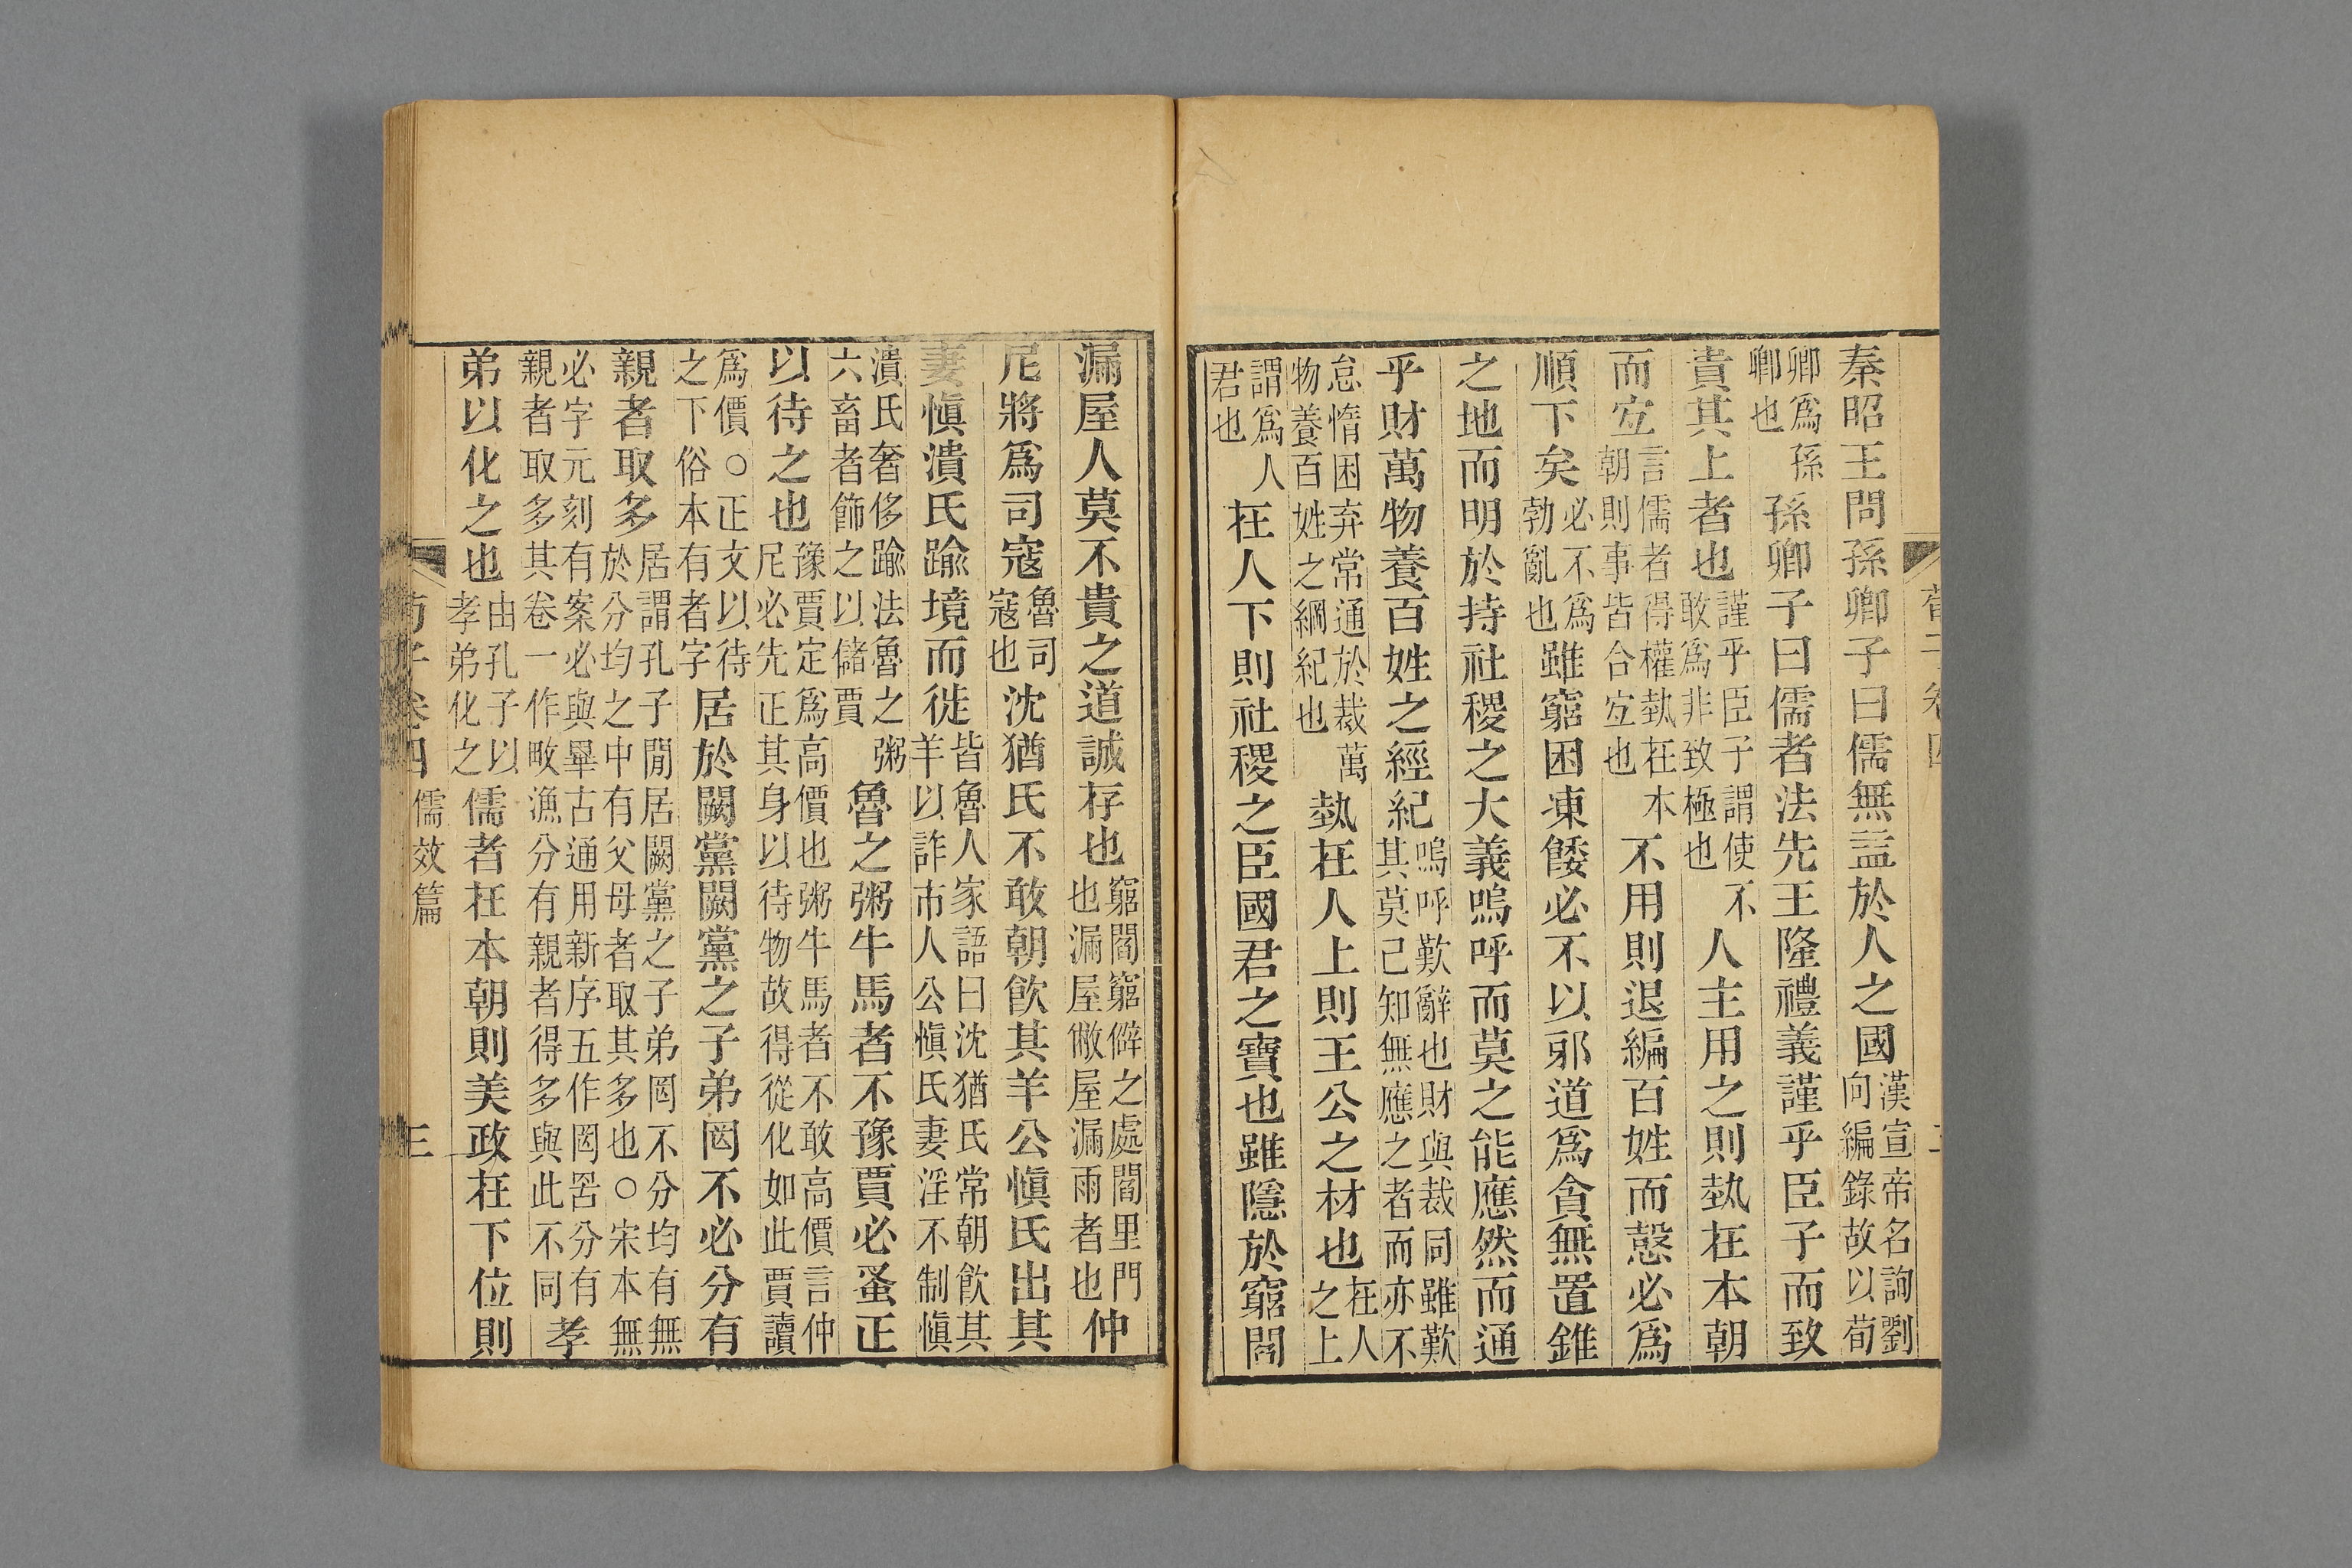 秦昭王問孫卿子曰儒無益於人之國漢宣帝名詢劉向編錄故以荀
卿爲孫卿也孫卿子曰儒者法先王隆禮義謹乎臣子而致
貴其上者也謹乎臣子謂使不敢爲非致極也人主用之則埶在本朝
而宐言儒者得權埶在本朝則事皆合宐也不用則退編百姓而愨必爲
順下矣必不爲勃亂也雖窮困凍餧必不以邪道爲貪無置錐
之地而明於持社稷之大義嗚呼而莫之能應然而通
乎財萬物養百姓之經紀嗚呼歎辭也財與裁同雖歎其莫己知無應之者而亦不
怠惰困弃常通於裁萬物養百姓之綱紀也埶在人上則王公之材也在人之上
謂爲人君也在人下則社稷之臣國君之寶也雖隱於窮閻
漏屋人莫不貴之道誠存也窮閻窮僻之處閻里門也漏屋敝屋漏雨者也仲
尼將爲司寇魯司寇也沈猶氏不敢朝飲其羊公愼氏出其
妻愼潰氏踰境而徙皆魯人家語曰沈猶氏常朝飲其羊以詐市人公愼氏妻淫不制愼
潰氏奢侈踰法魯之粥六畜者飾之以儲賈魯之粥牛馬者不豫賈必蚤正
以待之也豫賈定爲高價也粥牛馬者不敢高價言仲尼必先正其身以待物故得從化如此賈讀
爲價○正文以待之下俗本有者字居於闕黨闕黨之子弟罔不必分有
親者取多居謂孔子閒居闕黨之子弟罔不分均有無於分均之中有父母者取其多也○宋本無
必字元刻有案必與畢古通用新序五作罔罟分有親者取多其卷一作畋漁分有親者得多與此不同孝
弟以化之也由孔子以孝弟化之儒者在本朝則美政在下位則
荀子卷四 儒效篇 三